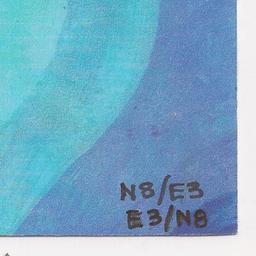 N8/E3
E3/N8